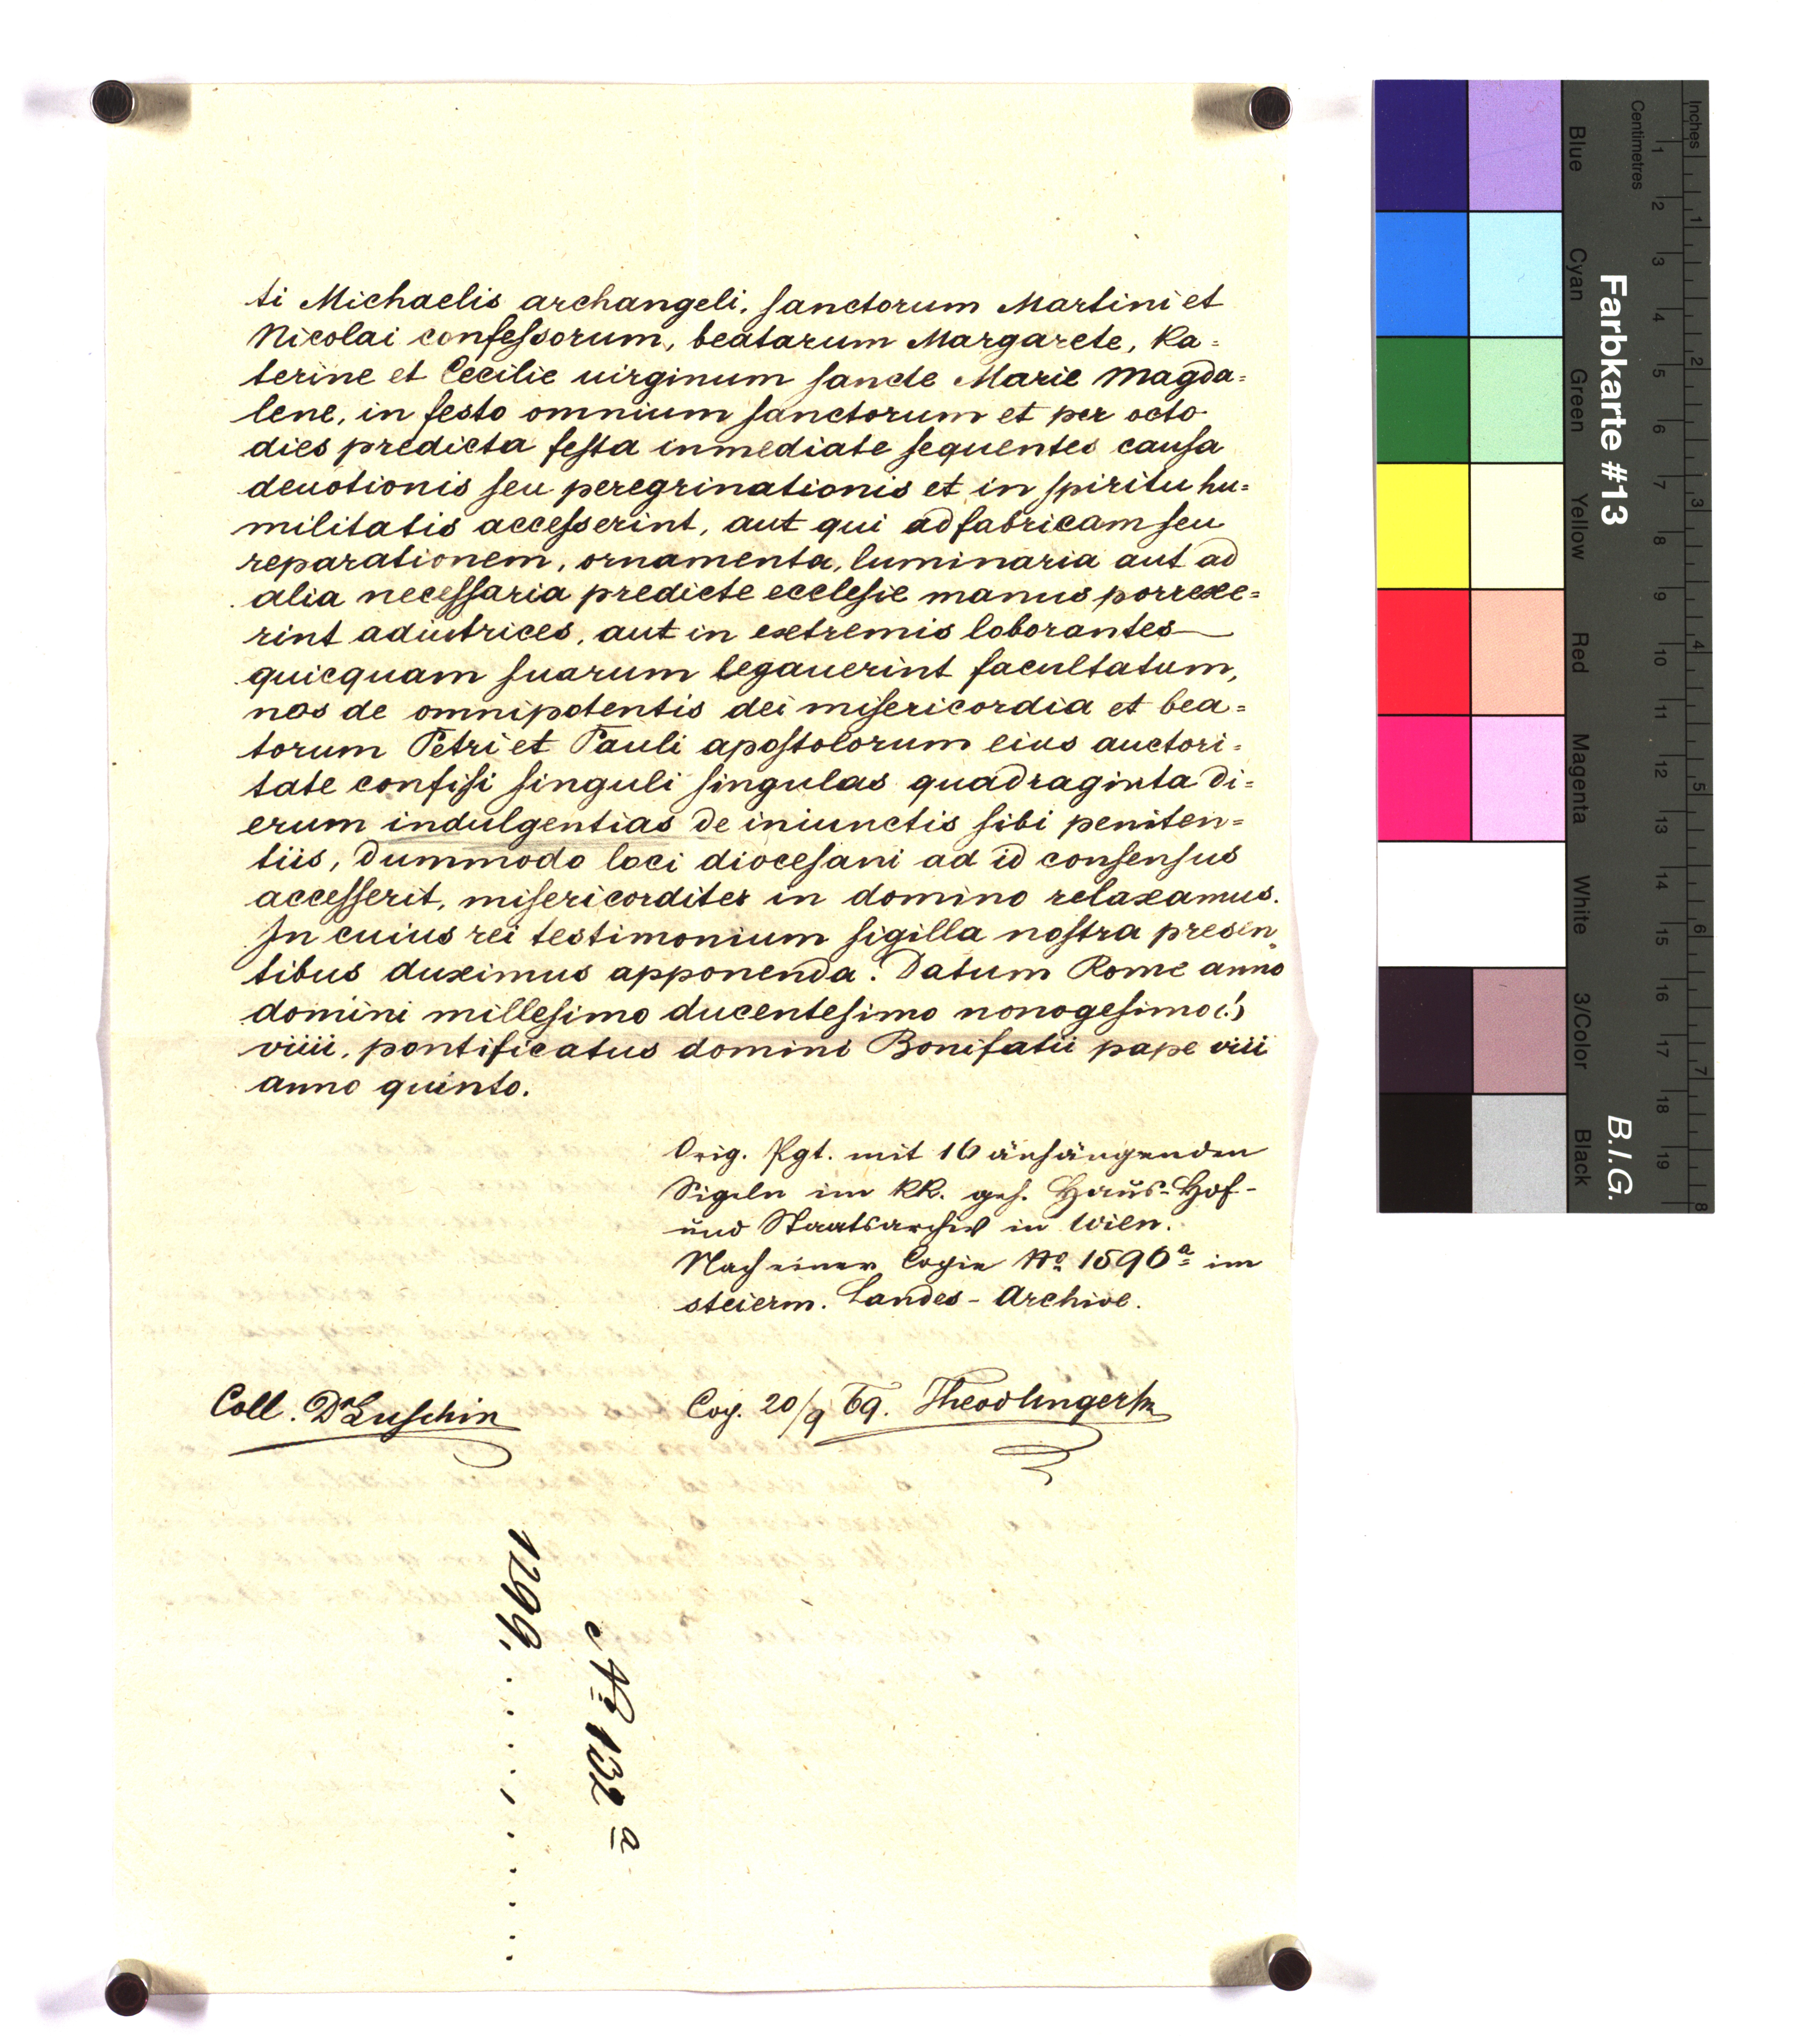 ti Michaelis archangeli, sanctorum Martini et
Nicolai confessorum, beatarum Margarete, Ka=
terine et Cecilie uirginum sancte Marie Magda=
lene, in festo omnium sanctorum et per octo
dies predicta festa inmediate sequentes causa
deuotionis seu peregrinationis et in spiritu hu=
militatis accesserint, aut qui ad fabricam seu
reparationem, ornamenta, luminaria aut ad
alia necessaria predicte ecclesie manus porrexe=
rint adiutrices, aut in extremis loborantes
quicquam suarum legauerint facultatum,
nos de omnipotentis dei misericordia et bea=
torum Petri et Pauli apostolorum eius auctori=
tate confisi singuli singulas quadraginta di=
erum indulgentias de iniunctis sibi peniten=
tiis, dummodo loci diocesani ad id consensus
accesserit, misericorditer in domino relaxamus.
In cuius rei testimonium sigilla nostra presen
tibus duximus apponenda. Datum Rome anno
domini millesimo ducentesimo nonogesimo (!)
viiii, pontificatus domini Bonifatii pape viii
anno quinto.
Orig. Pgt. mit 16 anhängenden
Sigeln im KK. geh. Haus-Hof-
und Staatsarchiv in Wien.
Nach einer Copie No 1596a im
steierm. Landes-Archive.
Coll. Dr Luschin
Cop. 20/9 69.
1299.
No 132 a
Farbkarte #13
B.I.G.
Inches
Centimetres
1 2 3 4 5 6 7 8 9 10 11 12 13 14 15 16 17 18 19
1 2 3 4 5 6 7 8
Blue
Cyan
Green
Yellow
Red
Magenta
White
3/Color
Black